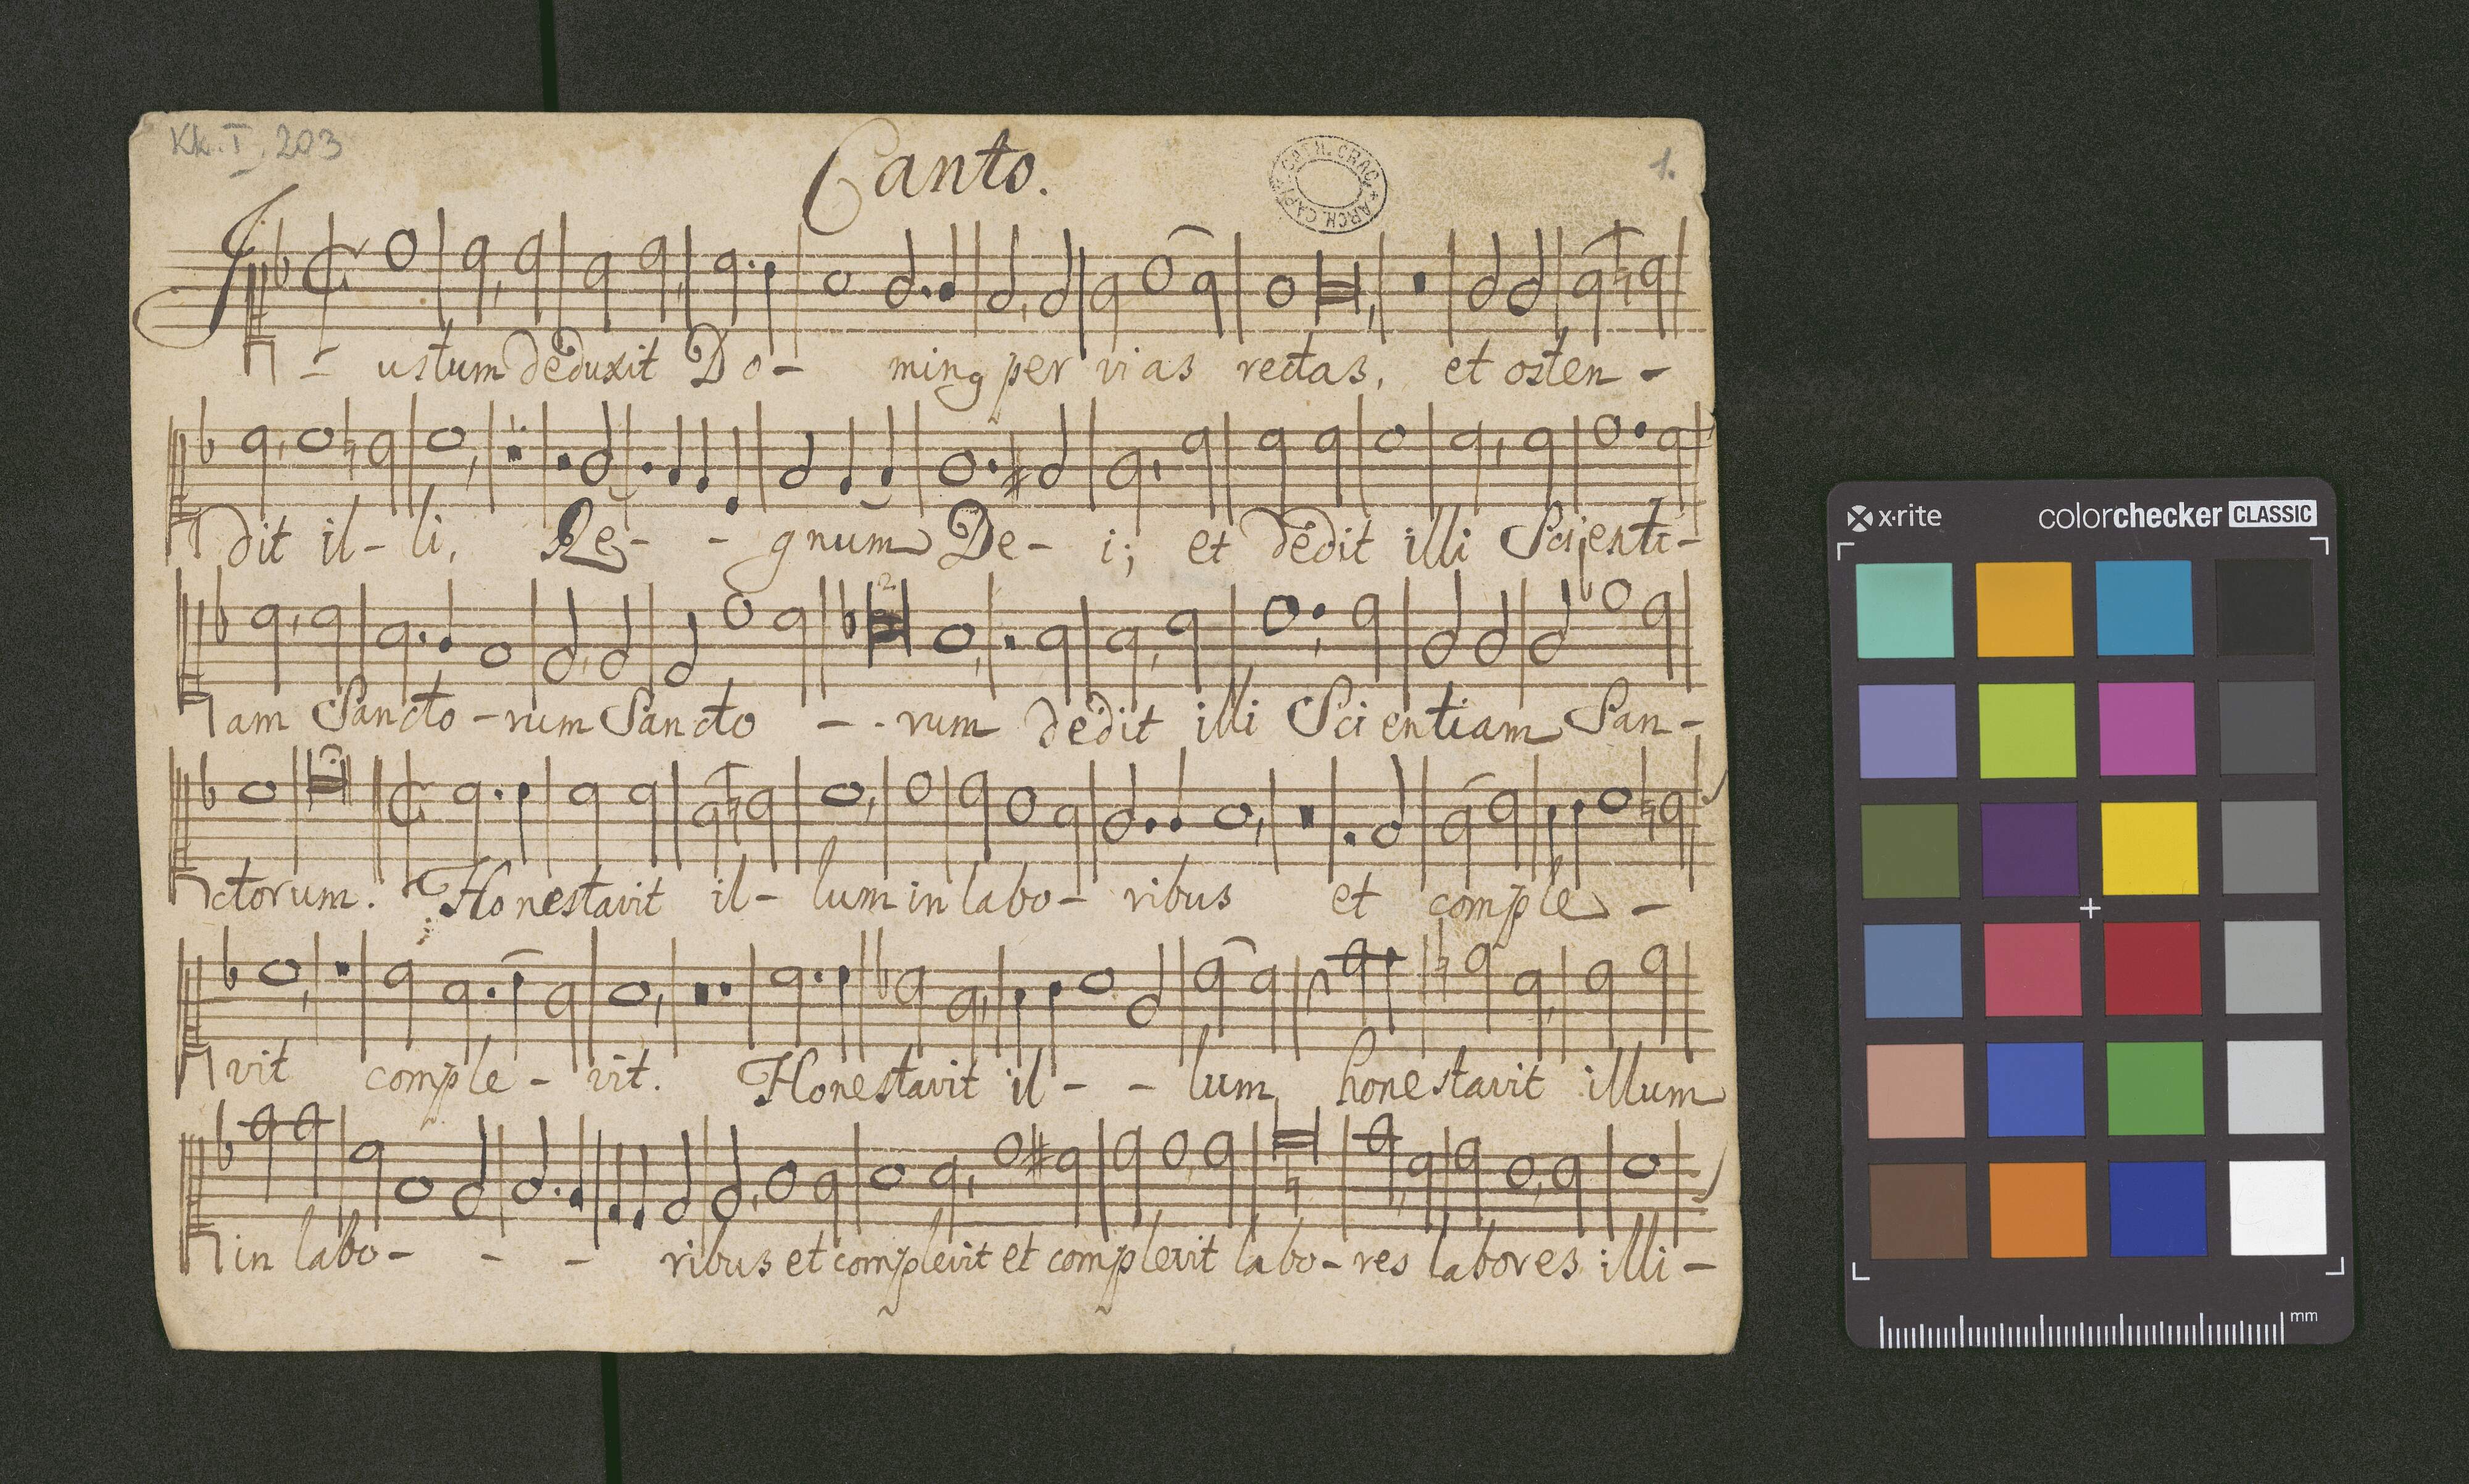 Kk. I. 203
Canto.
1.
ARCH. CAPIT. CATH. CRAC.
Justum deduxit Do- ming per vias rectas, et osten-
dit il- li, Re- - gnum De- i; et dedit illi Scienti-
am Sancto-rum Sancto - - rum dedit illi Scientiam San-
ctorum. Honestavit il- lum in labo- ribus et comple -
vit comple - vit. Honestavit il - - lum honestavit illum
in labo- - - ribus et complevit et complevit labo-res labores illi-
x·rite colorchecker CLASSIC
mm